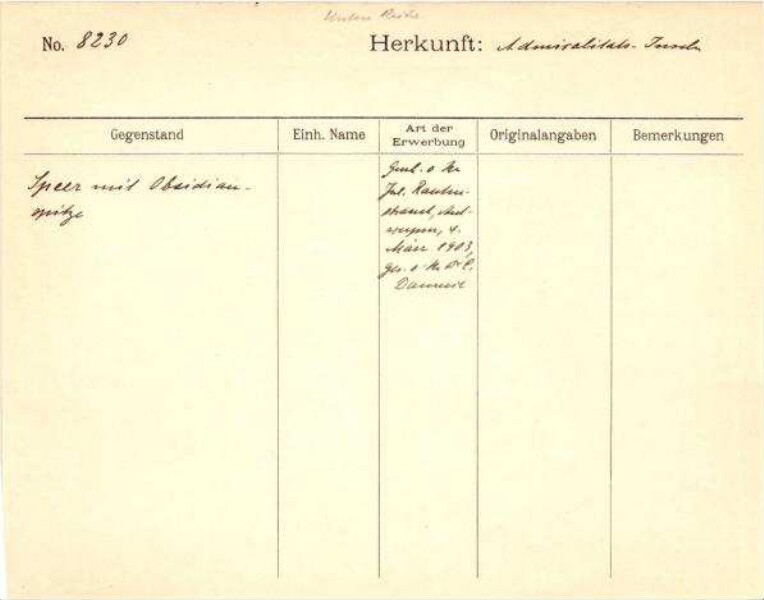 Untere Reihe
No. 8230 Herkunft: Admiralitäts-Inseln
Gegenstand Einh. Name Art der Erwerbung Originalangaben Bemerkungen
Speer mit Obsidian-
spitze
Gesch. v. Hr.
Jul. Rauten-
strauch, Ant-
werpen, 4.
März 1903,
ges. v. Hr. Dr. C.